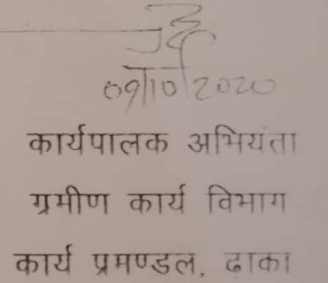 09/10/2020
कार्यपालक अभियंता
ग्रमीण कार्य विभाग
कार्य प्रमण्डल, ढाका